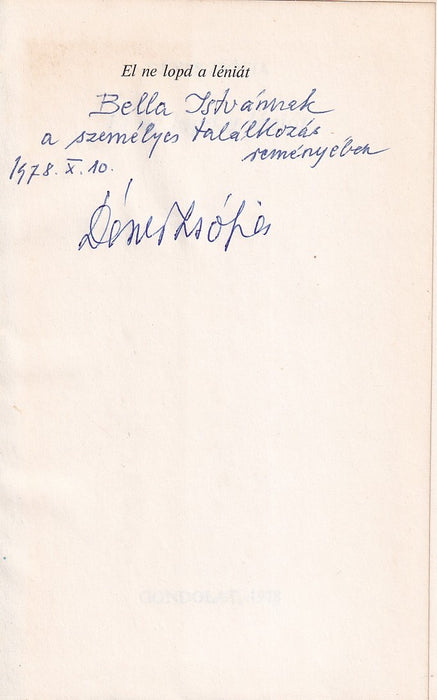 El ne lopd a léniát
Bella Istvánnak
a személyes találkozás
reményében
1978. X. 10.
Dénes Zsófia
GONDOLAT, 1978